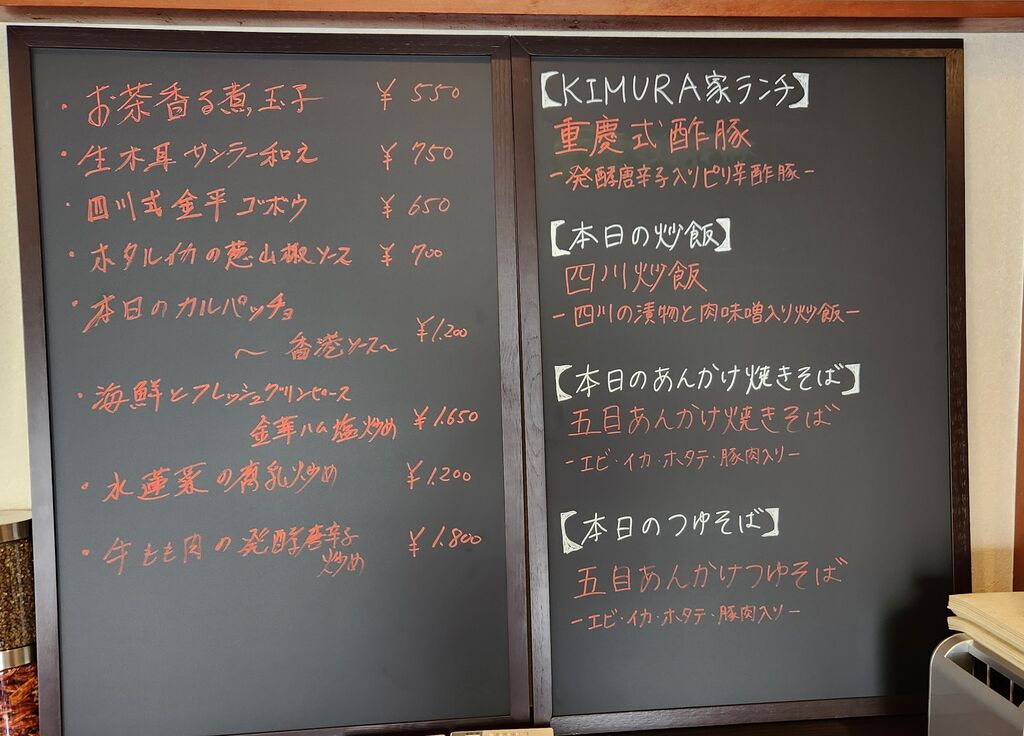 ・お茶香る煮玉子 ¥550
・生木耳サンラー和え ¥750
・四川式金平ゴボウ ¥650
・ホタルイカの葱山椒ソース ¥700
・本日のカルパッチョ
～香港ソース～ ¥1.200
・海鮮とフレッシュグリンピース
金華ハム塩炒め ¥1.650
・水蓮菜の腐乳炒め ¥1.200
・牛もも肉の発酵唐辛子
炒め ¥1.800
【KIMURA家ランチ】
重慶式酢豚
-発酵唐辛子入りピリ辛酢豚-
【本日の炒飯】
四川炒飯
-四川の漬物と肉味噌入り炒飯-
【本日のあんかけ焼きそば】
五目あんかけ焼きそば
-エビ・イカ・ホタテ・豚肉入り-
【本日のつゆそば】
五目あんかけつゆそば
-エビ・イカ・ホタテ・豚肉入り-